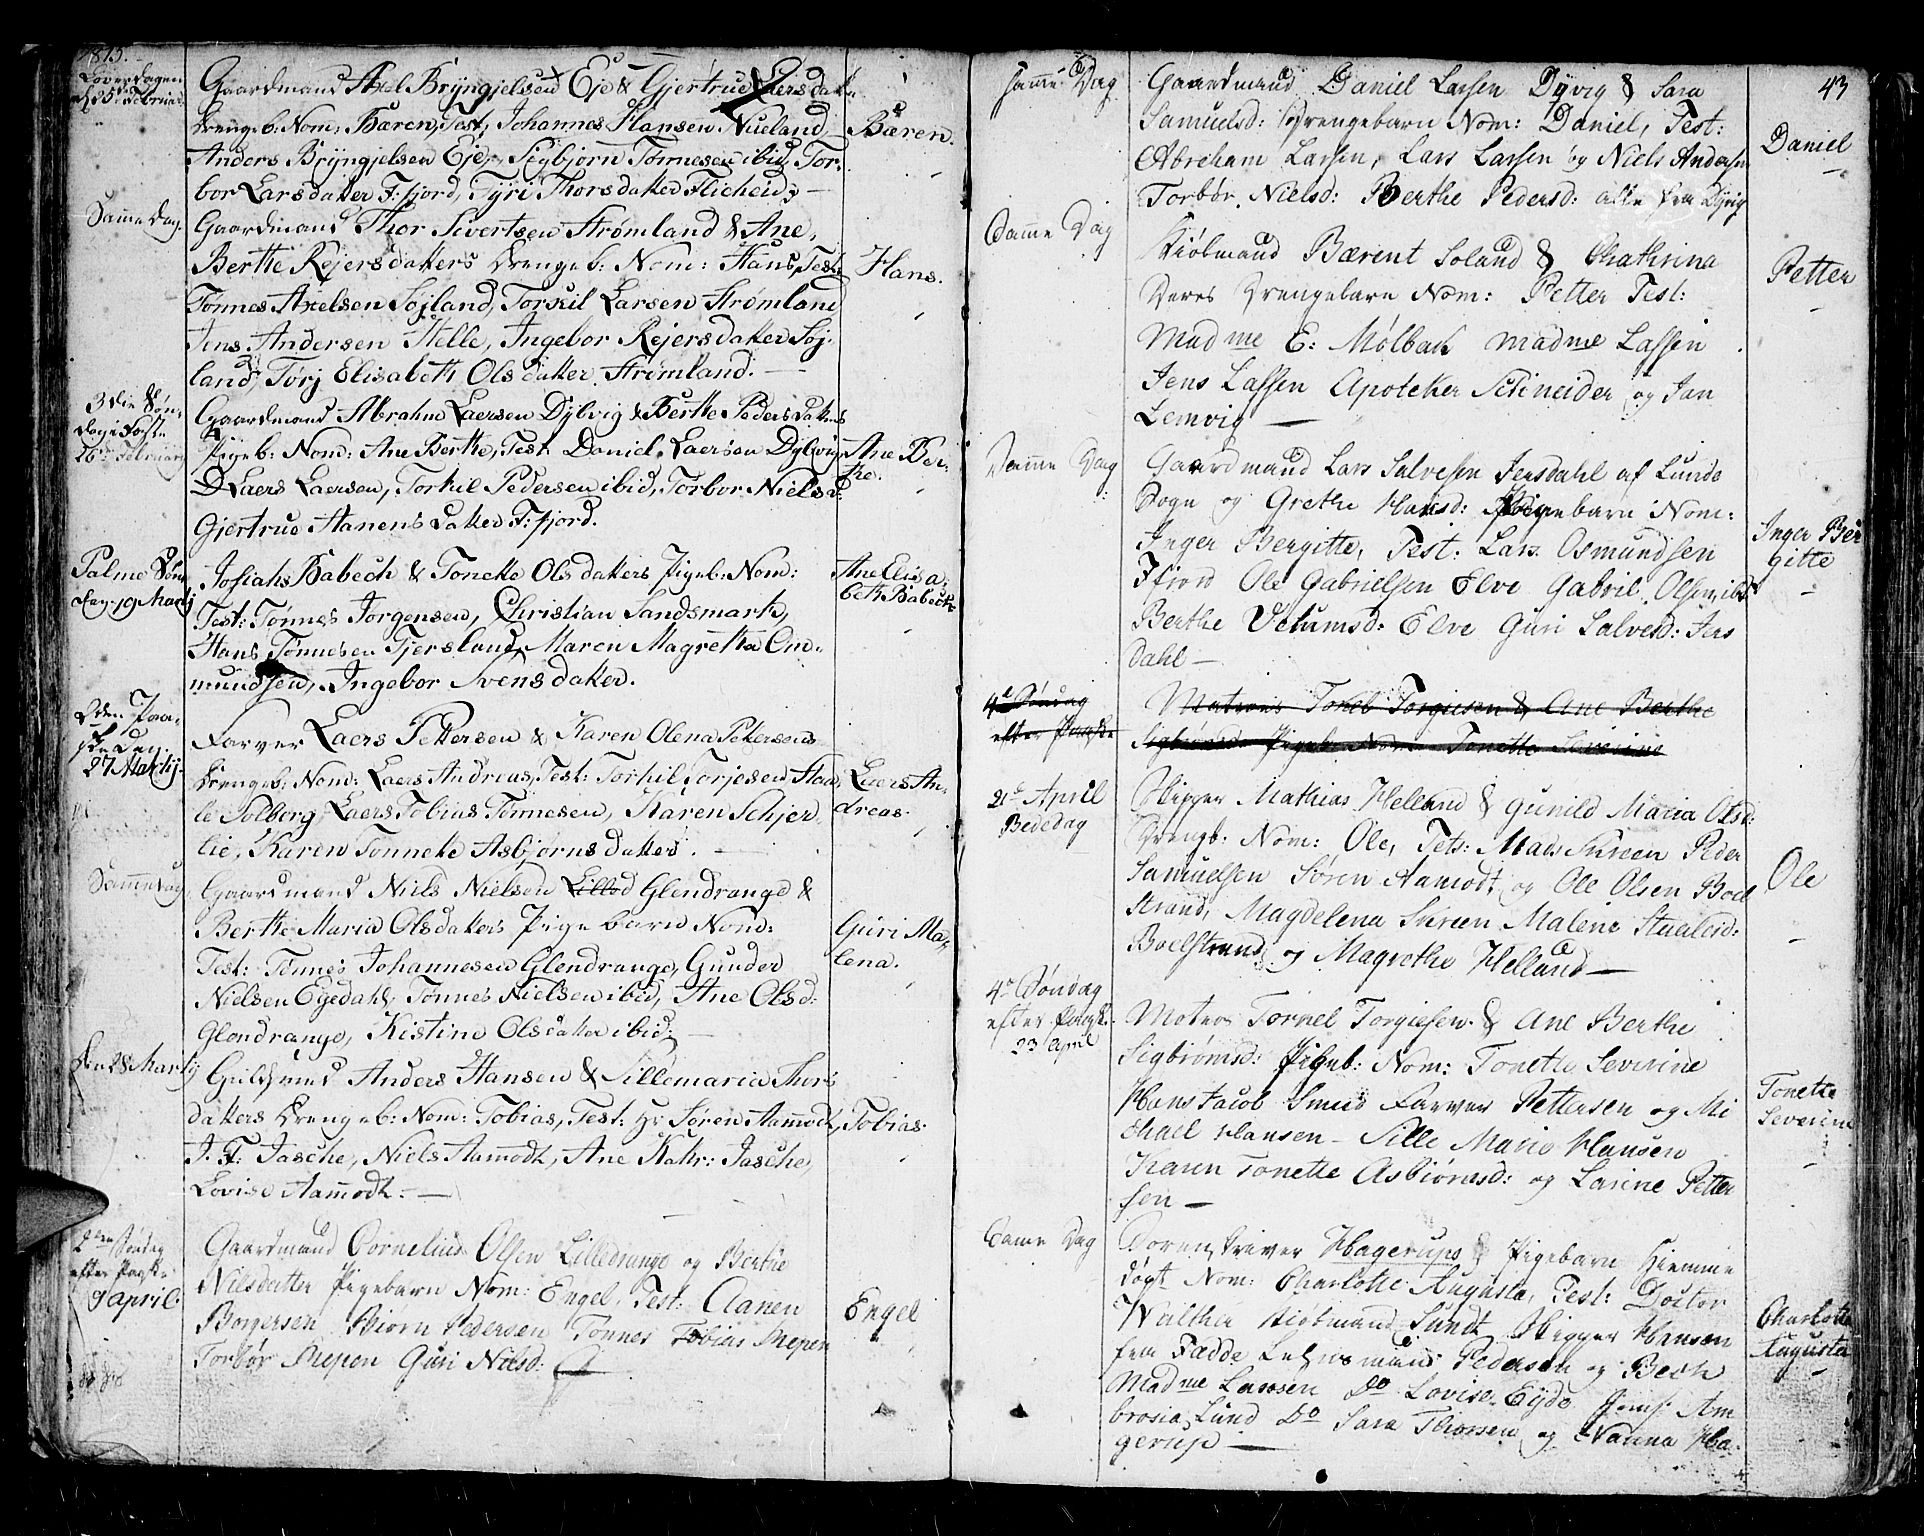 1815.
Løverdagen
d 25 Februar
Gaardmand Axel Bryngjelsen Eje & Gjertrue Laersdatter
Drengeb: Nom: Bæren, Test: Johannes Hansen Nueland,
Anders Bryngjelsen Eje, Sigbjørn Tønnesen ibid, Tor-
bor Larsdatter F:fjord, Tyri Thorsdatter Flicheid; —
Bæren.
Samme Dag.
Gaardmand Thor Sivertsen Strømland & Ane
Berthe Rejersdatters Drengeb: Nom: Hans, Test:
Tønnes Axelsen Sojland, Torkil Larsen Strømland
Jens Andersen Helle, Ingebor Rejersdatter Soj-
land, Torj Elisabeth Olsdatter Strømland. —
Hans.
3die Søn-
dag i Faste
26 Februar
Gaardmand Abrahm Laersen Dybvig & Berthe Pedersdatters
Pigeb: Nom: Ane Berthe, Test Daniel Laersen Dybvig
Laers Laersen, Torkil Pedersen ibid, Torbor Nielsd:
Gjertrue Aanensdatter F:fjord.
Ane Ber-
the.
Palme Søn-
dag. 19 Martj
Josiahs Babech & Tonette Olsdatters Pigeb: Nom:
Test: Tønnes Jorgensen, Christian Sandsmark,
Hans Tønnesen Fjersland, Maren Magrettha Om-
mundsen, Ingebor Svensdatter.
Ane Elisa-
beth Babech
2den Paa-
ske Dag.
27 Martij
Farver Laers Pettersen & Karen Olena Petersens
Drengeb: Nom: Laers Andreas, Test: Torkil Torjesen
Solberg, Laers Tobias Tønnesen, Karen Schjer
lie, Karen Tonnette Asbjørnsdatter. —
Laers An-
dreas.
Samme Dag
Gaardmand Niels Nielsen Glendrange &
Berthe Maria Olsdatters Pigebarn Nom:
Test: Tønnes Johannesen Glendrange, Gunder
Nielsen Egedahl, Tønnes Nielsen ibid, Ane Olsd:
Glendrange, Kistine Olsdatter ibid: —
Guri Ma-
lena.
den 28 Martij
Guldsmed Anders Hansen & Sillemaria Thors
datters Drengeb: Nom: Tobias, Test: Hr Søren Aamodt,
J. F. Jasche, Niels Aamodt, Ane Kathr: Jasche,
Lovise Aamodt. —
Tobias.
2den Søndag
efter Paaske
9 April.
Gaardmand Cornelius Olsen Lilledrange og Berthe
Nilsdatter Pigebarn Nom: Engel, Test: Aanen
Børgersen Biørn Pedersen Tønnes Tobias Mepen
Torbør Mepen Guri Nilsd:
Engel
43
Samme Dag
Gaardmand Daniel Larsen Dyvig & Sara
Samuelsd: Drengebarn Nom: Daniel, Test:
Abreham Larsen, Lars Larsen og Niels Andersen
Torbør Nielsd: Berthe Pedersd: alle fra Dyvig
Daniel
Samme Dag
Kiøbmand Bærent Soland & Chathrina
Deres Drengebarn Nom: Petter Test:
Madme E: Mølbach Madme Lassen
Jens Lassen Apoteker Schneider og Jan
Lemvig —
Petter
Samme Dag
Gaardmand Lars Salvesen Jersdahl af Lunde
Sogn og Grethe Hansd: Pigebarn Nom:
Inger Bergitte, Test: Lars Osmundsen
Ffiord Ole Gabrielsen Elve Gabriel Olsen ibd
Berthe Velumsd: Elve Guri Salvesd: Jers
dahl —
Inger Ber
gitte
4de Søndag
efter Paaske
Matros Tonel Torgiesen & Ane Berthe
Sigbørnsd: Pigeb: Nom: Tonette Severine
21de April
Bededag
Skipper Mathias Helland & Gunild Maria Olsd:
Drengb: Nom: Ole, Tets: Mads Skreen Peder
Samuelsen Søren Aamodt og Ole Olsen Boel
strand, Magdelena Skreen Malene
Boelstrand og Magrethe Helland —
Ole
4de Søndag
efter Paaske
23 April
Matros Tornel Torgiesen & Ane Berthe
Sigbiørnsd: Pigeb: Nom: Tonette Severine
Hans Jacob Smed Farver Pettersen og Mi
chael Hansen — Sille Marie Hansen
Karen Tonette Asbiørnsd: og Larine Petter
sen —
Tonette
Severine
Same Dag
Sorenskriver Hagerups & Pigebarn Hiemme
døgt Nom: Charlotte Augusta, Test: Doctor
Walther Kiøbmand Lundt Skipper Hansen
fra Fædde Lehnsmand Pedersen og Bech
Madme Larssen Do Lovise Eyde Jomf. Am
brosia Lund Do Sara Thorsen og Nanna Ha-
gerup —
Charlotte
Augusta